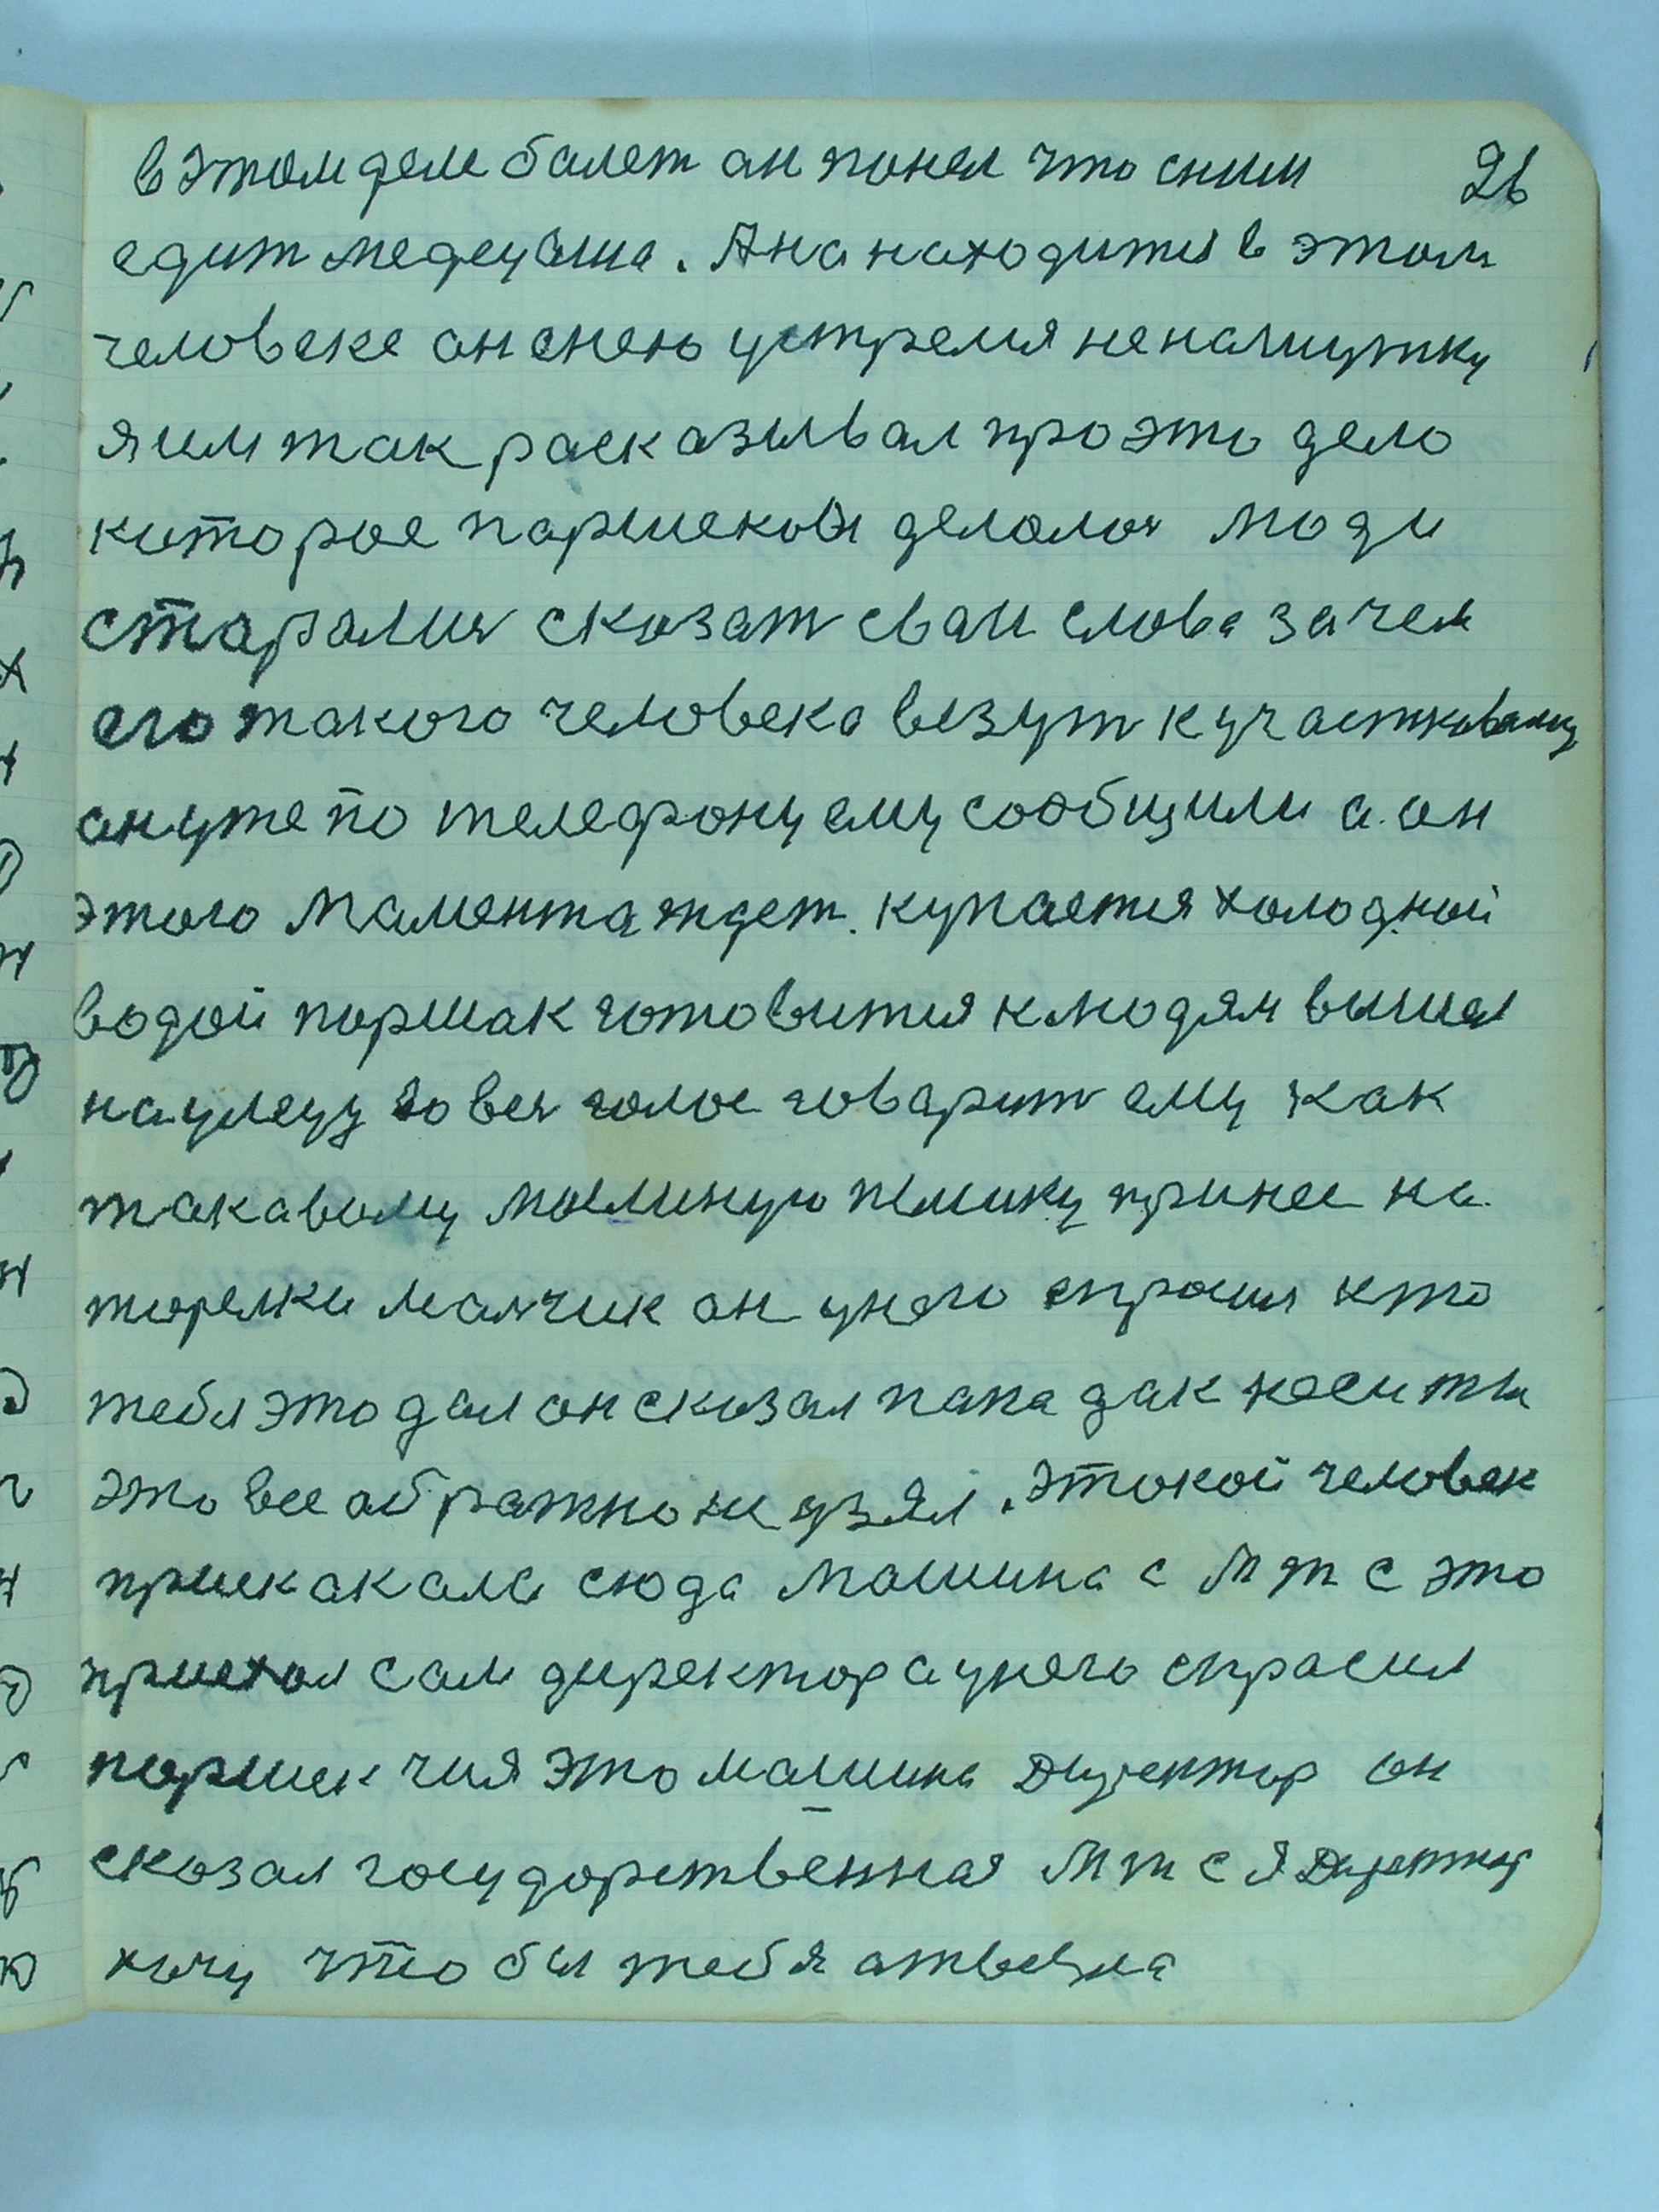 в этом деле балет ан понел что сним 26
едит медецына. Ана находится в этом
человеке анснею устремя ненашутку
я им так расказывал про это дело
которое паршеком делалоя люди
старалися сказат сваи слова зачем
его такого человека везут к участковаму
ануже по телефону ему сообщили а ан
этого мамента ждет. купается холодной
водой паршак готовится клюдям вышел
наулецу во вся голос говарит ему как
такавому масленую пышку принес на
торелки малчик ан унего спрасил кто
тебя это дал ансказал папа дак неси ты
это все абратно не узял. этокой человек
прискакала сюда машина с М т с это
приехал сам директор а унего спрасил
паршек чия это машина Директор он
сказал государственная М т с я Директор
хочу что бы тебя атвезла